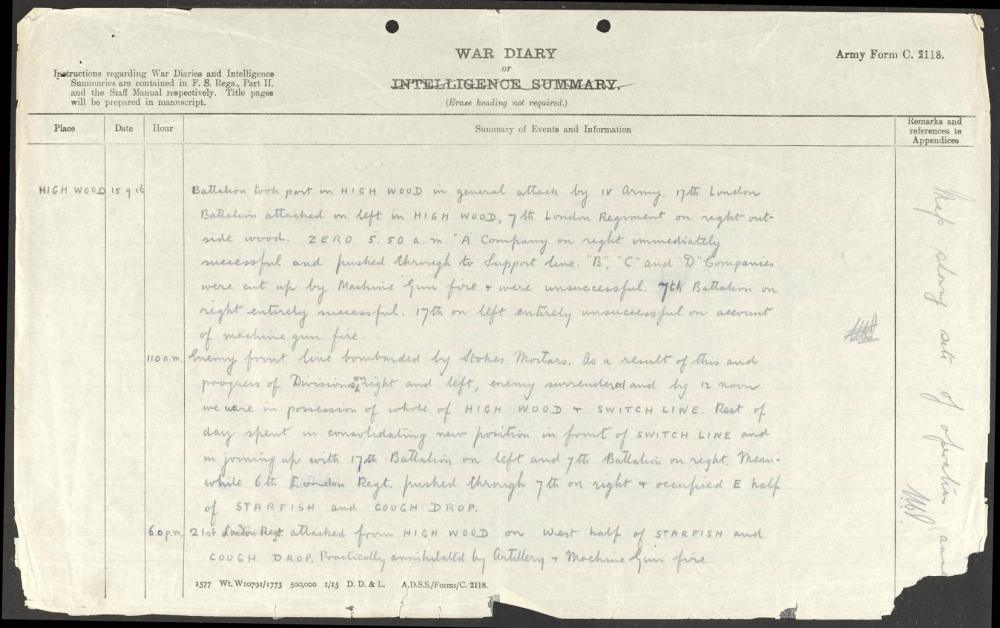 WAR DIARY
or
INTELLIGENCE SUMMARY.
(Erase heading not required.)
Army Form C. 2118.
Instructions regarding War Diaries and Intelligence
Summaries are contained in F. S. Regs., Part II.
and the Staff Manual respectively. Title pages
will be prepared in manuscript.
Place Date Hour Summary of Events and Information Remarks and references to Appendices
HIGH WOOD 15.9.16 Battalion took part in HIGH WOOD in general attack by IV Army. 17th London
Battalion attached on left in HIGH WOOD, 7th London Regiment on right out-
side wood. ZERO 5.50 a.m. "A" Company on right immediately
successful and pushed through to Support line. "B", "C" and "D" Companies
were cut up by Machine Gun fire + were unsuccessful. 7th Battalion on
right entirely successful. 17th on left entirely unsuccessful on account
of machine gun fire.
11 0 a.m. Enemy front line bombarded by Stokes Mortars. As a result of this and
progress of Divisions on right and left, enemy surrendered and by 12 noon
we were in possession of whole of HIGH WOOD + SWITCH LINE. Rest of
day spent in consolidating new position in front of SWITCH LINE and
in joining up with 17th Battalion on left and 7th Battalion on right. Mean-
while 6th London Regt. pushed through 7th on right + occupied E half
of STARFISH and COUGH DROP.
6.0 p.m. 21st London Regt attacked from HIGH WOOD on West half of STARFISH and
COUGH DROP. Practically annihilated by Artillery + Machine Gun fire
Map of operation
1577 Wt. W10791/1773 500,000 1/15 D. D. & L. A.D.S.S./Forms/C. 2118.